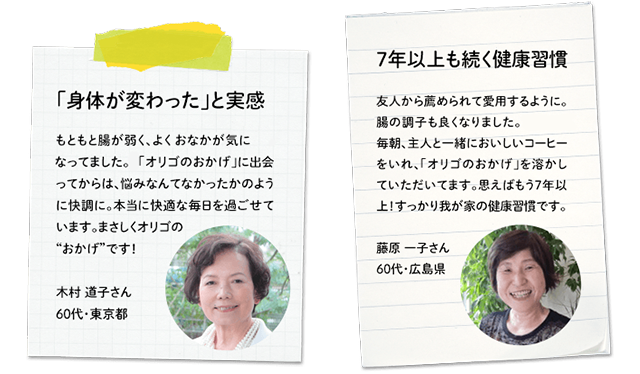 「身体が変わった」と実感
もともと腸が弱く、よくおなかが気に
なってました。「オリゴのおかげ」に出会
ってからは、悩みなんてなかったかのよう
に快調に。本当に快適な毎日を過ごせて
います。まさしくオリゴの
“おかげ”です！
木村 道子さん
60代・東京都
7年以上も続く健康習慣
友人から薦められて愛用するように。
腸の調子も良くなりました。
毎朝、主人と一緒においしいコーヒー
をいれ、「オリゴのおかげ」を溶かし
ていただいてます。思えばもう7年以
上！すっかり我が家の健康習慣です。
藤原 一子さん
60代・広島県